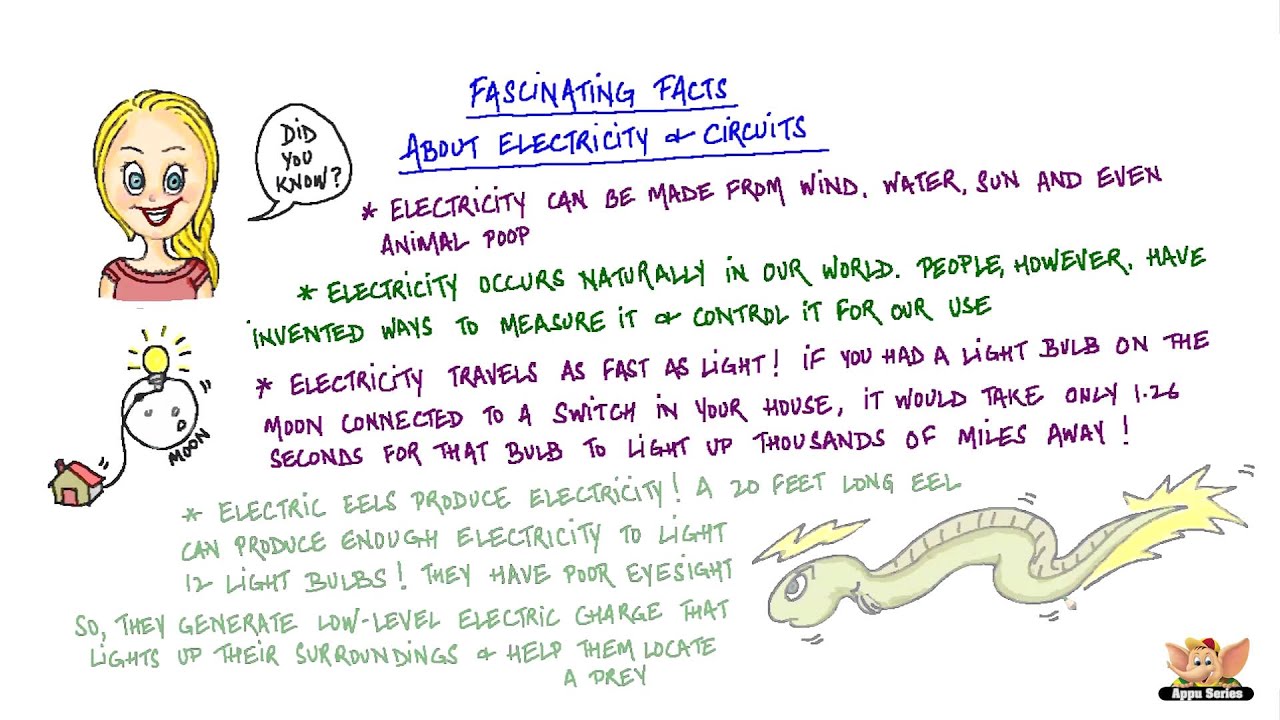 FASCINATING FACTS
ABOUT ELECTRICITY & CIRCUITS
DID
YOU
KNOW?
* ELECTRICITY CAN BE MADE FROM WIND. WATER, SUN AND EVEN
ANIMAL POOP
* ELECTRICITY OCCURS NATURALLY IN OUR WORLD. PEOPLE, HOWEVER, HAVE
INVENTED WAYS TO MEASURE IT & CONTROL IT FOR OUR USE
* ELECTRICITY TRAVELS AS FAST AS LIGHT! IF YOU HAD A LIGHT BULB ON THE
MOON CONNECTED TO A SWITCH IN YOUR HOUSE, IT WOULD TAKE ONLY 1.26
SECONDS FOR THAT BULB TO LIGHT UP THOUSANDS OF MILES AWAY!
MOON
* ELECTRIC EELS PRODUCE ELECTRICITY! A 20 FEET LONG EEL
CAN PRODUCE ENOUGH ELECTRICITY TO LIGHT
12 LIGHT BULBS! THEY HAVE POOR EYESIGHT
SO, THEY GENERATE LOW-LEVEL ELECTRIC CHARGE THAT
LIGHTS UP THEIR SURROUNDINGS & HELP THEM LOCATE
A PREY
Appu Series